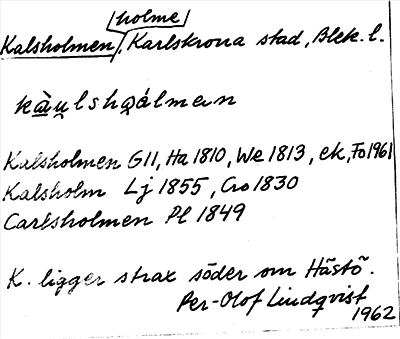 holme
Kalsholmen, Karlskrona stad, Blek. l.
kàu̯lshǫálmen
Kalsholmen GII, Ha 1810, We 1813, ek, Fo 1961
Kalsholm Lj 1855, Cro 1830
Carlsholmen Pl 1849
K. ligger strax söder om Hästö.
Per-Olof Lindqvist
1962